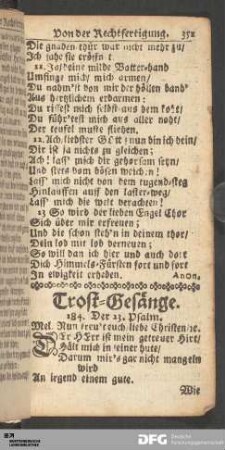 Von der Rechtfertigung. 351
Die gnaden-thür war nicht mehr zu/
Ich sahe sie eröffnet.
11. Ja/ deine milde Vatter-hand
Umfinge mich/ mich armen/
Du nahm'st von mir der höllen band
Aus hertzlichem erbarmen:
Du rissest mich selbst aus dem koht/
Du führ'test mich aus aller noht/
Der teufel muste fliehen.
12. Ach liebster Gott! nun bin ich dein/
Dir ist ja nichts zu gleichen;
Ach! lass' mich dir gehorsam seyn/
Und stets vom bösen weichen!
Lass' mich nicht von dem tugend-steg
Hinlauffen auf den laster-weg/
Lass' mich die welt verachten!
13 So wird der lieben Engel Chor
Sich über mir erfreuen;
Und die schon steh'n in deinem thor/
Dein lob mit lob verneuen;
So will dan ich hier und auch dort
Dich Himmels-Fürsten fort und fort
In ewigkeit erheben. Anon.
Trost-Gesänge.
184. Der 23. Psalm.
Mel. Nun freut euch liebe Christen/ ꝛc.
DEr HErr ist mein getreuer Hirt/
Hält mich in seiner hute/
Darum mir's gar nicht mangeln
wird
An irgend einem gute.
Wie
DFG Deutsche
Forschungsgemeinschaft